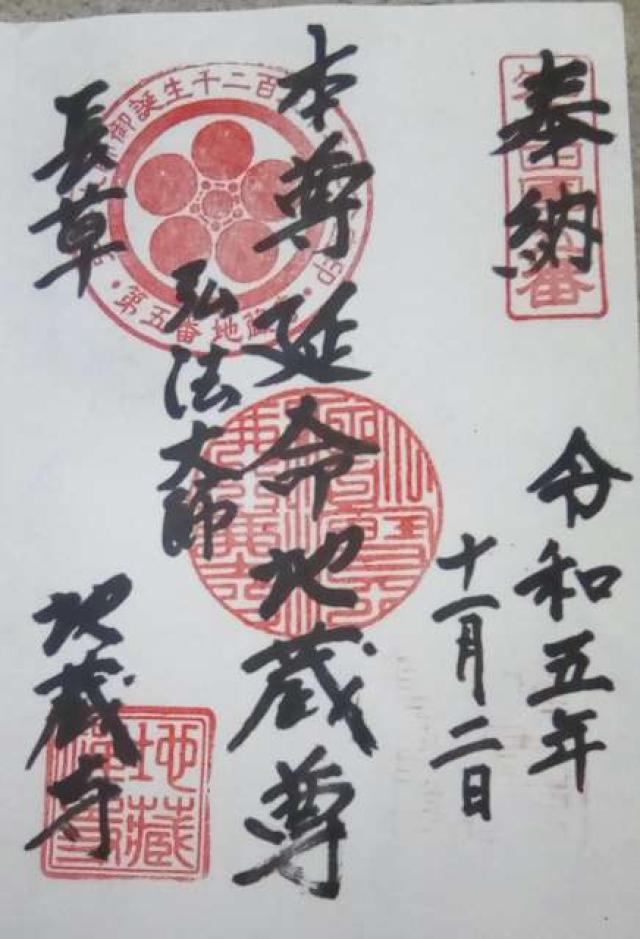 奉納
令和五年
十一月二日
本尊 延命地蔵尊
弘法大師
長草
地蔵寺
御誕生千二百
第五番地蔵
番
地蔵